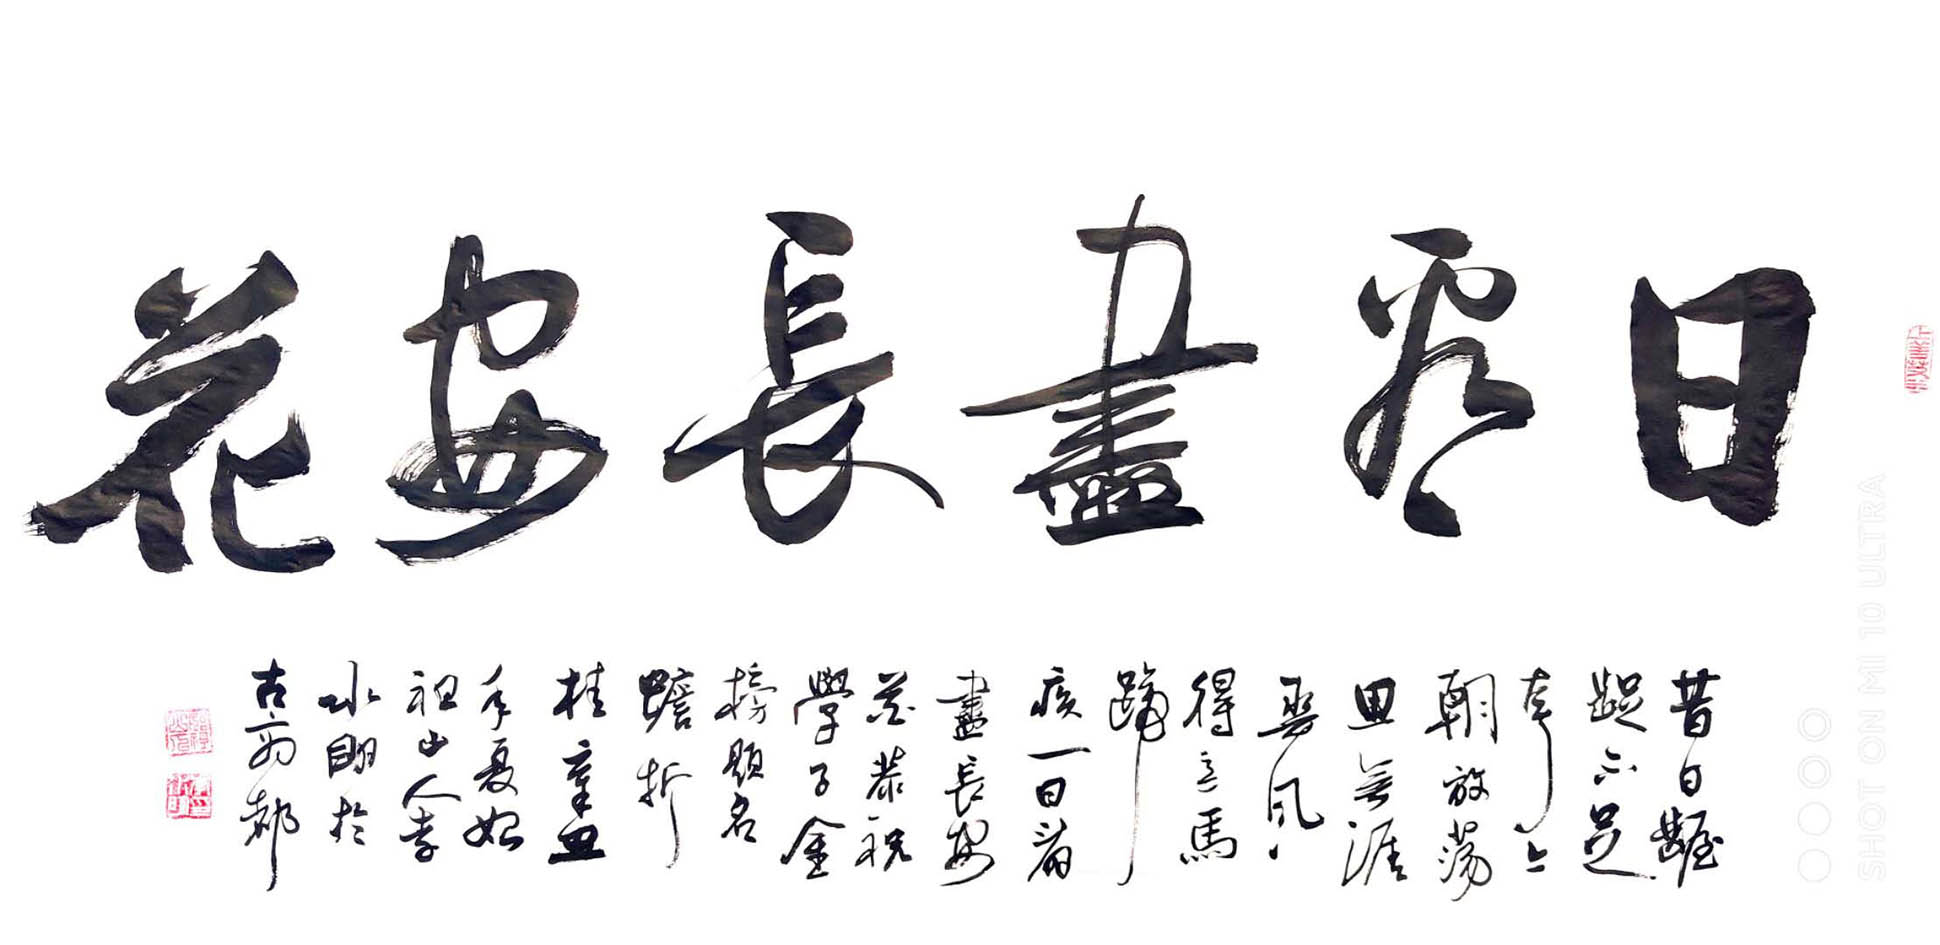 日看盡長安花
昔日齷
齪不足
夸今
朝放蕩
思無涯
春風
得意馬
蹄
疾一日看
盡長安
花恭祝
學子金
榜題名
蟾折
桂辛丑
年夏始
祖山人李
水明於
古齊都
SHOT ON MI 10 ULTRA